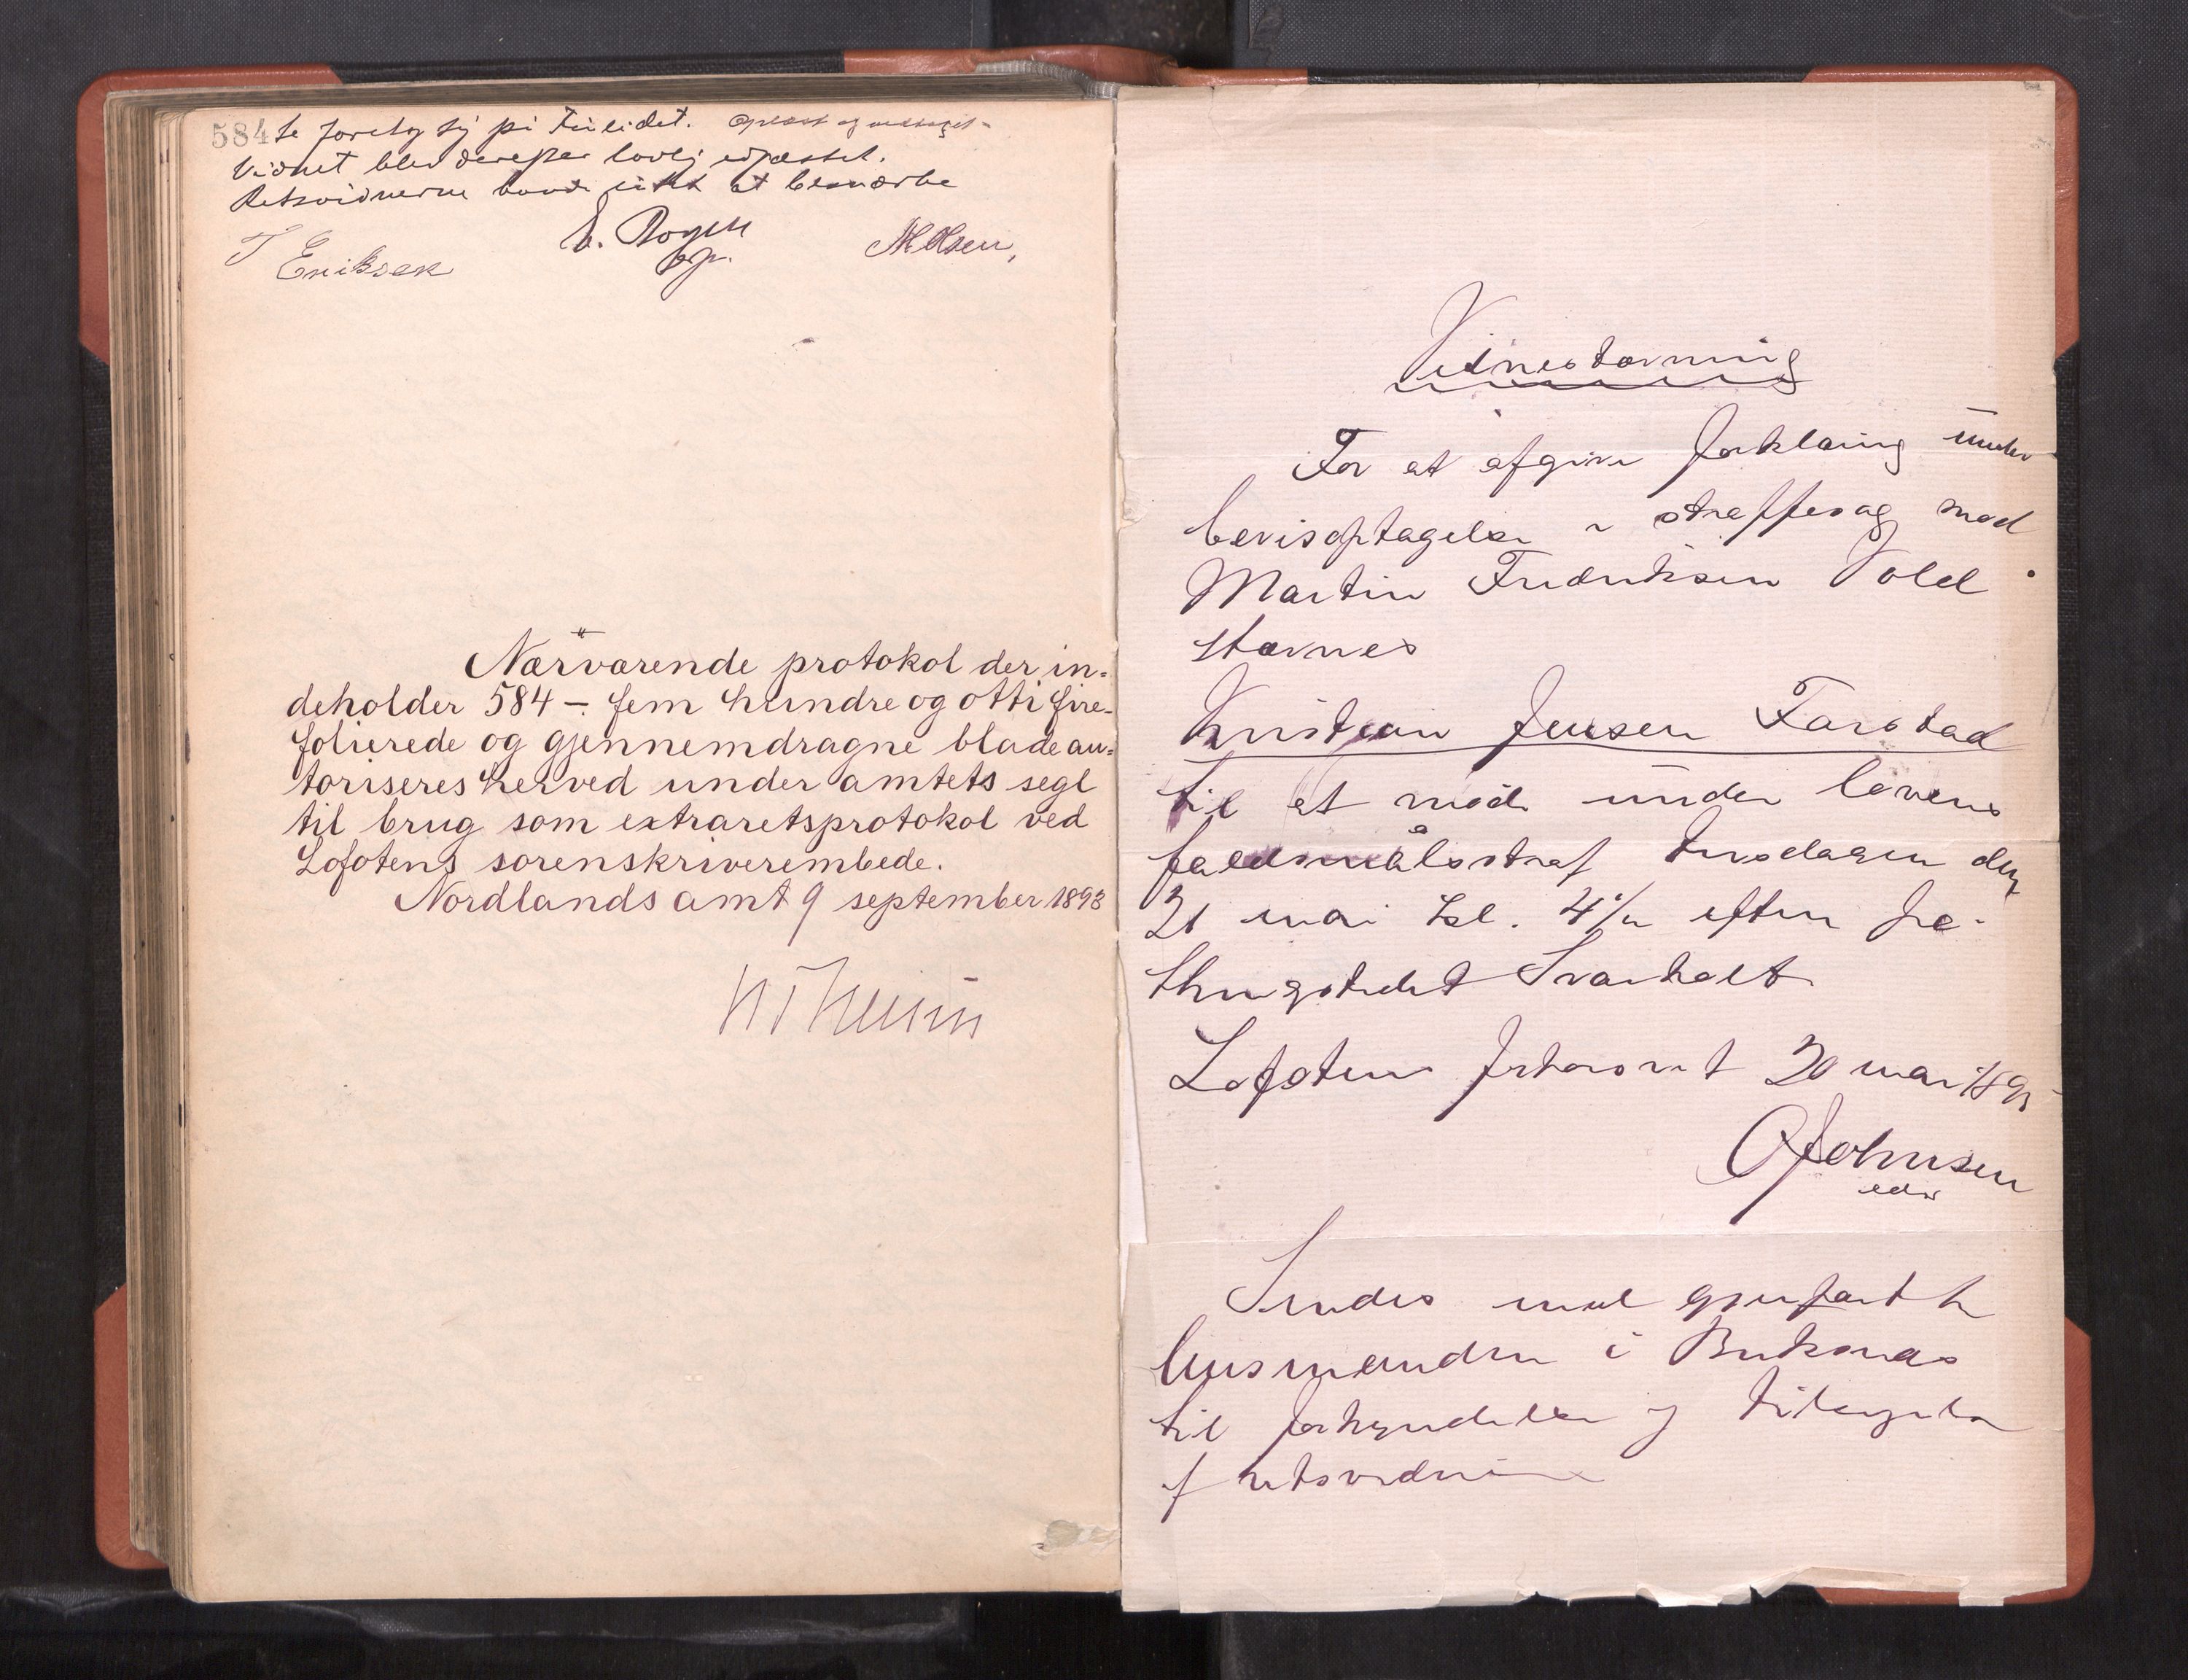 584 te foretog sig på Tueidet. Oplæst og vedtaget.
Vidnet blev derefter lovlig edfæstet.
Retsvidnerne havde intet at bemærke
T Eriksen E. Rogen M Olsen,
Nærværende protokol der in-
deholder 584 – fem hundre og otti fire-
folierede og gjennemdragne blade au-
toriseres herved under amtets segl
til brug som extraretsprotokol ved
Lofotens sorenskriverembede.
Nordlands amt 9 september 1893
Vidnestævning
For at afgive forklaring under
bevisoptagelse i straffesag mod
Martin Fredriksen Vold
stævnes
Kristian Jensen Farstad
til at møde under lovens
faldsmålsstraf tirsdagen den
21 mai kl. 4 1/2 efterm på
thingstedet Svarholt
Lofotens forhørsret 20 mai 189
O Johnsen
edv
Sendes med gjenpart
lensmanden i Buksnæs
til forkyndelse og tilsigelse
af retsvidner